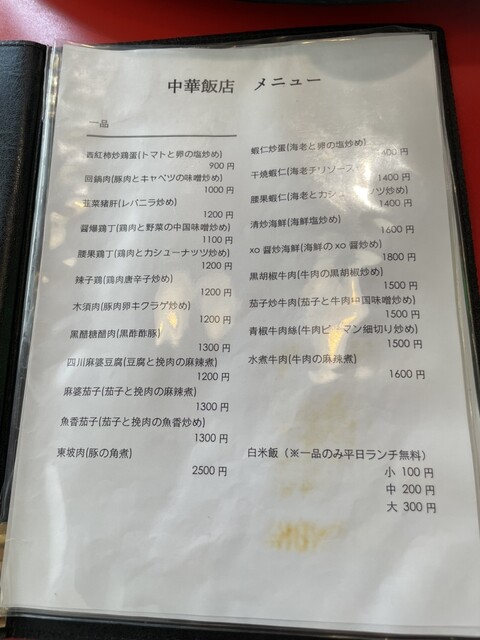 中華飯店 メニュー
一品
西紅柿炒鶏蛋(トマトと卵の塩炒め)
900 円
回鍋肉(豚肉とキャベツの味噌炒め)
1000 円
韮菜猪肝(レバニラ炒め)
1200 円
醤爆鶏丁(鶏肉と野菜の中国味噌炒め)
1100 円
腰果鶏丁(鶏肉とカシューナッツ炒め)
1200 円
辣子鶏(鶏肉唐辛子炒め)
1200 円
木須肉(豚肉卵キクラゲ炒め)
1200 円
黒醋糖醋肉(黒酢酢豚)
1300 円
四川麻婆豆腐(豆腐と挽肉の麻辣煮)
1200 円
麻婆茄子(茄子と挽肉の麻辣煮)
1300 円
魚香茄子(茄子と挽肉の魚香炒め)
1300 円
東坡肉(豚の角煮)
2500 円
蝦仁炒蛋(海老と卵の塩炒め)
400 円
干焼蝦仁(海老チリソース
1400 円
腰果蝦仁(海老とカシューナッツ炒め)
1400 円
清炒海鮮(海鮮塩炒め)
1600 円
xo 醤炒海鮮(海鮮の xo 醤炒め)
1800 円
黒胡椒牛肉(牛肉の黒胡椒炒め)
1500 円
茄子炒牛肉(茄子と牛肉中国味噌炒め)
1500 円
青椒牛肉絲(牛肉ピーマン細切り炒め)
1500 円
水煮牛肉(牛肉の麻辣煮)
1600 円
白米飯(※一品のみ平日ランチ無料)
小 100 円
中 200 円
大 300 円